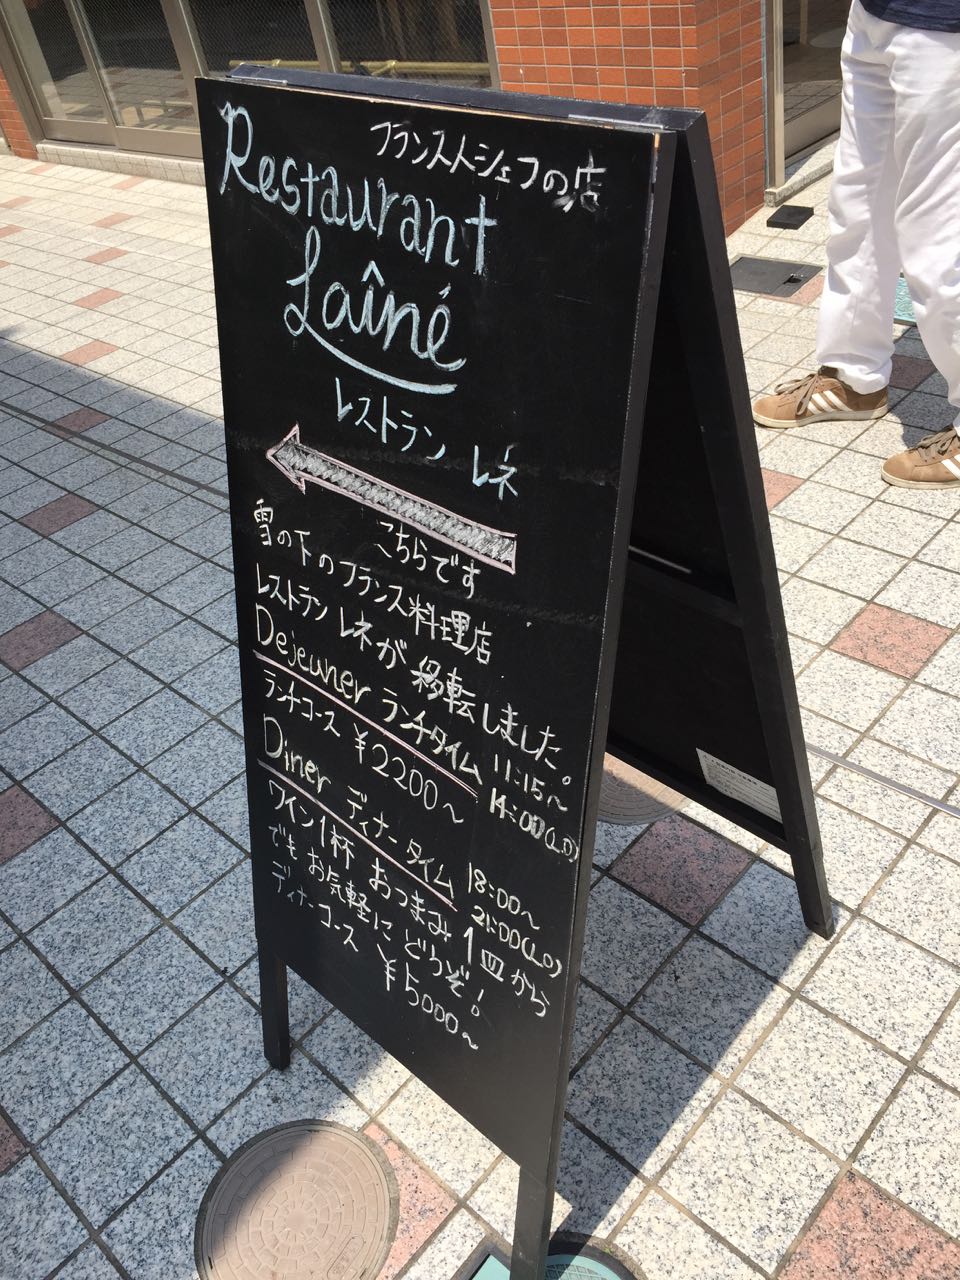 フランス人シェフの店
Restaurant
Laîné
レストラン レネ
こちらです
雪の下のフランス料理店
レストラン レネが 移転しました。
Dejeuner ランチタイム 11:15～
14:00(L.O)
ランチコース ¥2200～
Diner ディナータイム 18:00～
21:00(L.O)
ワイン1杯 おつまみ 1皿から
でも お気軽に どうぞ!
ディナーコース ¥5000～